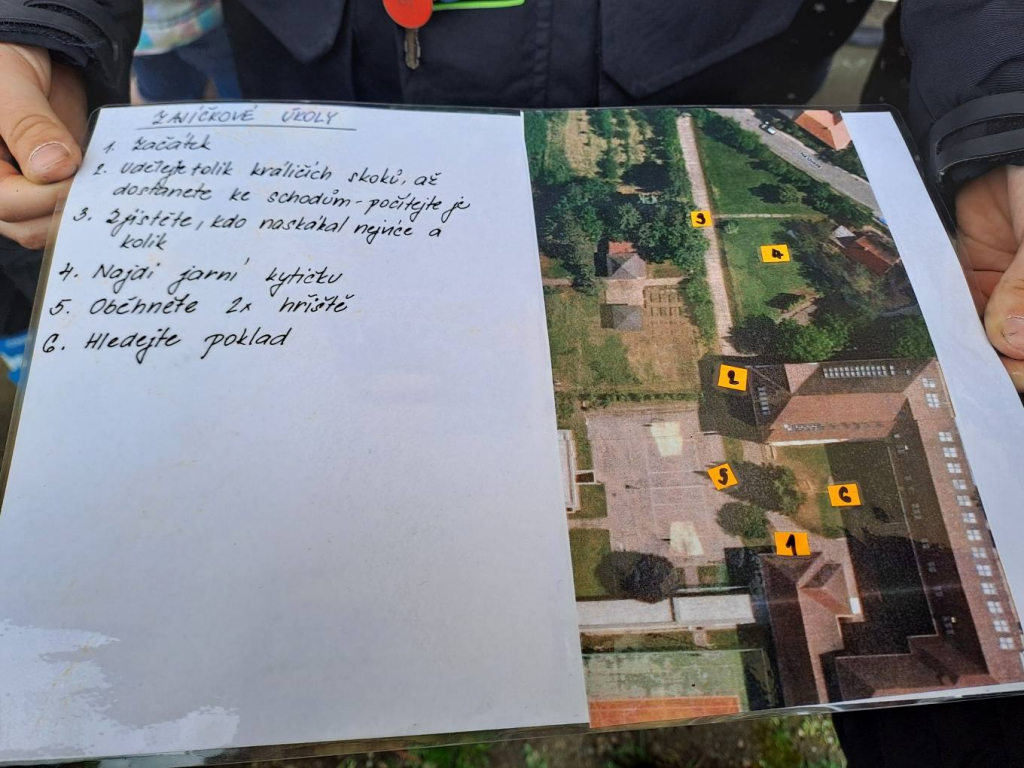 ZAJÍČKOVÉ ÚKOLY
1. Začátek
2. Udělejte tolik králičích skoků, až
dostanete ke schodům - počítejte je
3. Zjistěte, kdo naskákal nejvíce a
kolik
4. Najdi jarní kytičku
5. Oběhněte 2x hřiště
6. Hledejte poklad
3
4
2
5
6
1